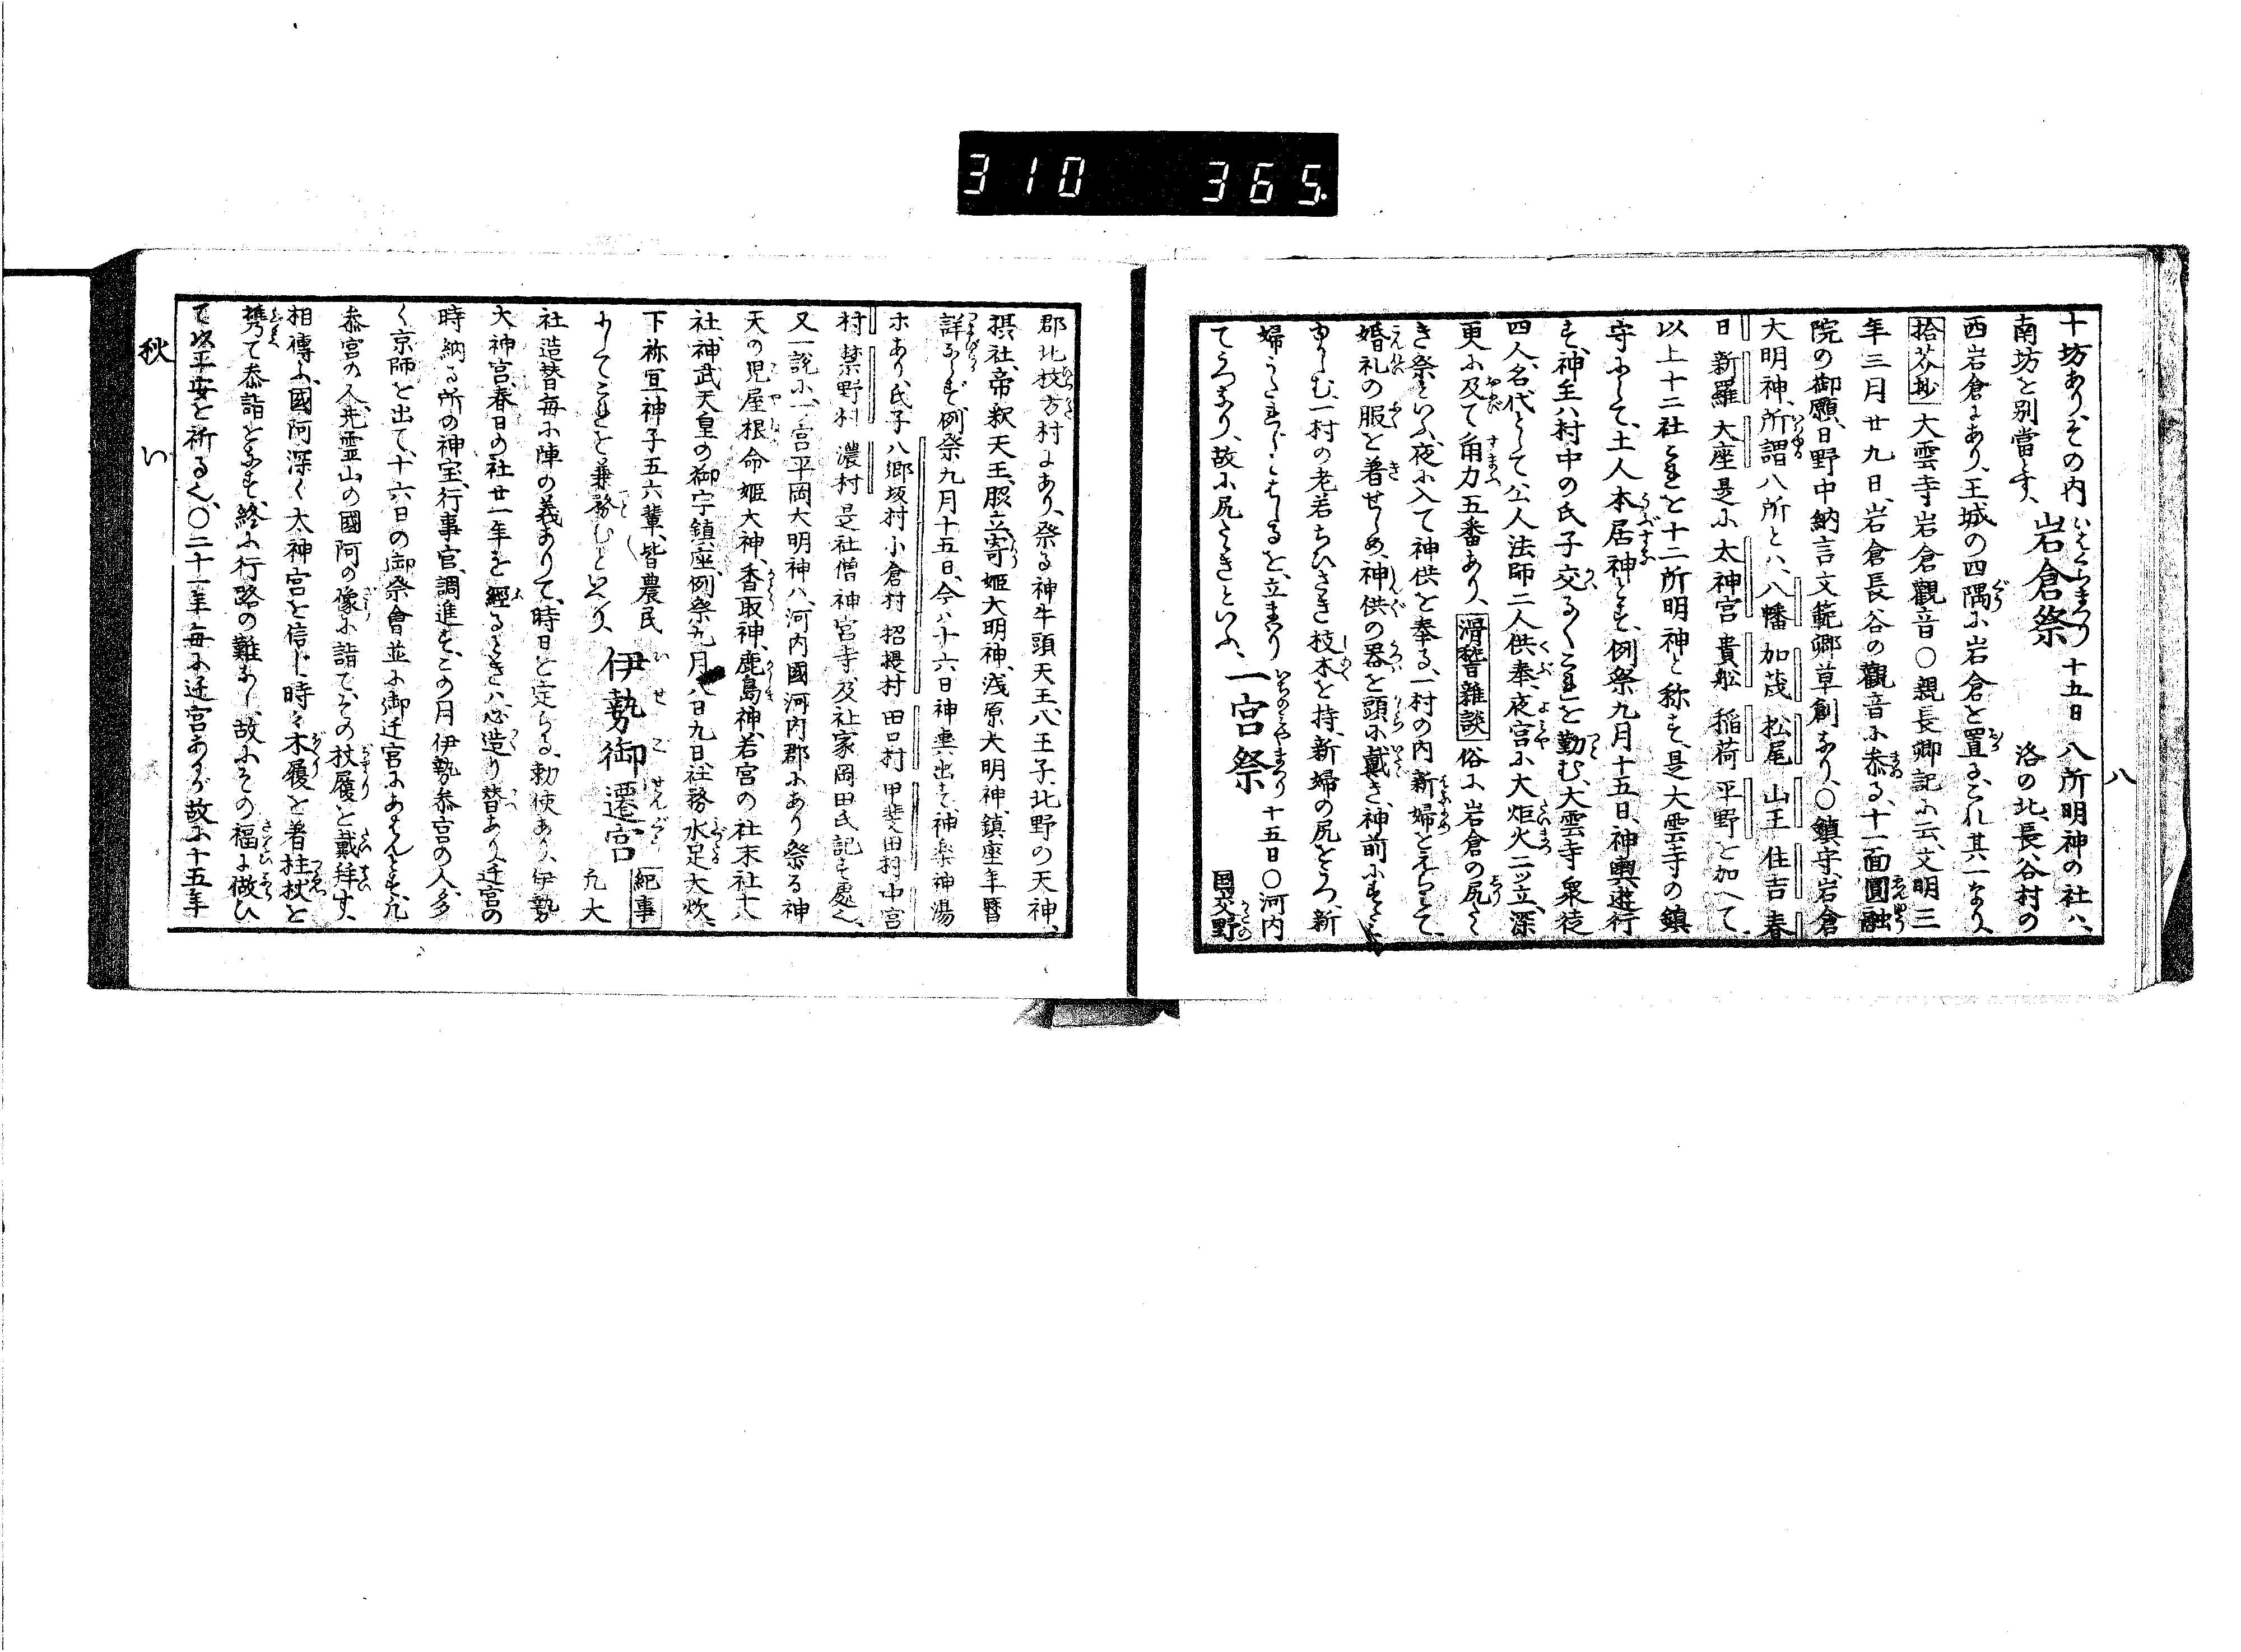 310 365.
八
十坊あり、その内岩倉祭いはくらまつり十五日八所明神の社ハ、
南坊を別當とす、洛の北、長谷村の
西岩倉にあり、王城の四隅に岩倉を置る、これ其一なり、
拾芥抄大雲寺岩倉觀音〇親長卿記に云、文明三
年三月廿九日、岩倉長谷の觀音に参る、十一面圓融
院の御願、日野中納言文範卿草創なり、〇鎮守、岩倉
大明神、所謂八所とハ、八幡 加茂 松尾 山王 住吉 春
日 新羅 大座是に太神宮 貴舩 稲荷 平野を加へて、
以上十二社これを十二所明神と称す、是大雲寺の鎮
守にして、土人本居神とす、例祭九月十五日、神輿遊行
す、神主ハ村中の氏子交るくこれを勤む、大雲寺衆徒
四人、名代として、公人法師二人供奉、夜宮に大炬火二ッ立、深
更に及て角力五番あり、滑稽雑談俗に岩倉の尻たゝ
き祭といふ、夜に入て神供を奉る、一村の内新婦をえらミて、
婚礼の服を着せしめ、神供の器を頭に戴き、神前にすゝ
ましむ、一村の老若ちひさき枝木を持、新婦の尻をうつ、新
婦うたれじとはしるを、立まはり一宮祭いちのみやまつり十五日〇河内
てうつなり、故に尻たゝきといふ、国交野
郡北枚方村にあり、祭る神牛頭天王、八王子、北野の天神、
摂社、帝釈天王、股立寄姫大明神、浅原大明神、鎮座年暦
詳ならず、例祭九月十五日、今ハ十六日神輿出す、神楽神湯
ホあり、氏子八郷坂村 小倉村 招提村 田口村 甲斐田村 中宮
村 禁野村 濃村 是社僧神宮寺、及社家岡田氏記す處也、
又一説に、一宮平岡大明神ハ、河内國河内郡にあり祭る神
天の児屋根命 姫大神、香取神、鹿島神、若宮の社末社十八
社、神武天皇の御宇鎮座、例祭九月八日九日、社務水走大炊、
下祢宜神子五六輩、皆農民伊勢御遷宮いせごせんぐう紀事
にしてこれを兼務むといへり、凡大
社造替毎に陣の義ありて、時日を定らる、勅使あり、伊勢
大神宮、春日の社廿一年を經るときハ、必造り替あり、迁宮の
時納る所の神宝、行事官、調進す、この月伊勢参宮の人、多
く京師を出て、十六日の御祭會並に御迁宮にあはんとす、凡
参宮の人、先霊山の國阿の像に詣て、その杖履を戴拜す、
相傳ふ、國阿深く太神宮を信じ、時々木履を着拄杖を
携て参詣をなす、終に行路の難なし、故にその福に倣ひ
て以平安を祈る也、〇二十一年毎に迁宮あるが故に十五年
秋 い